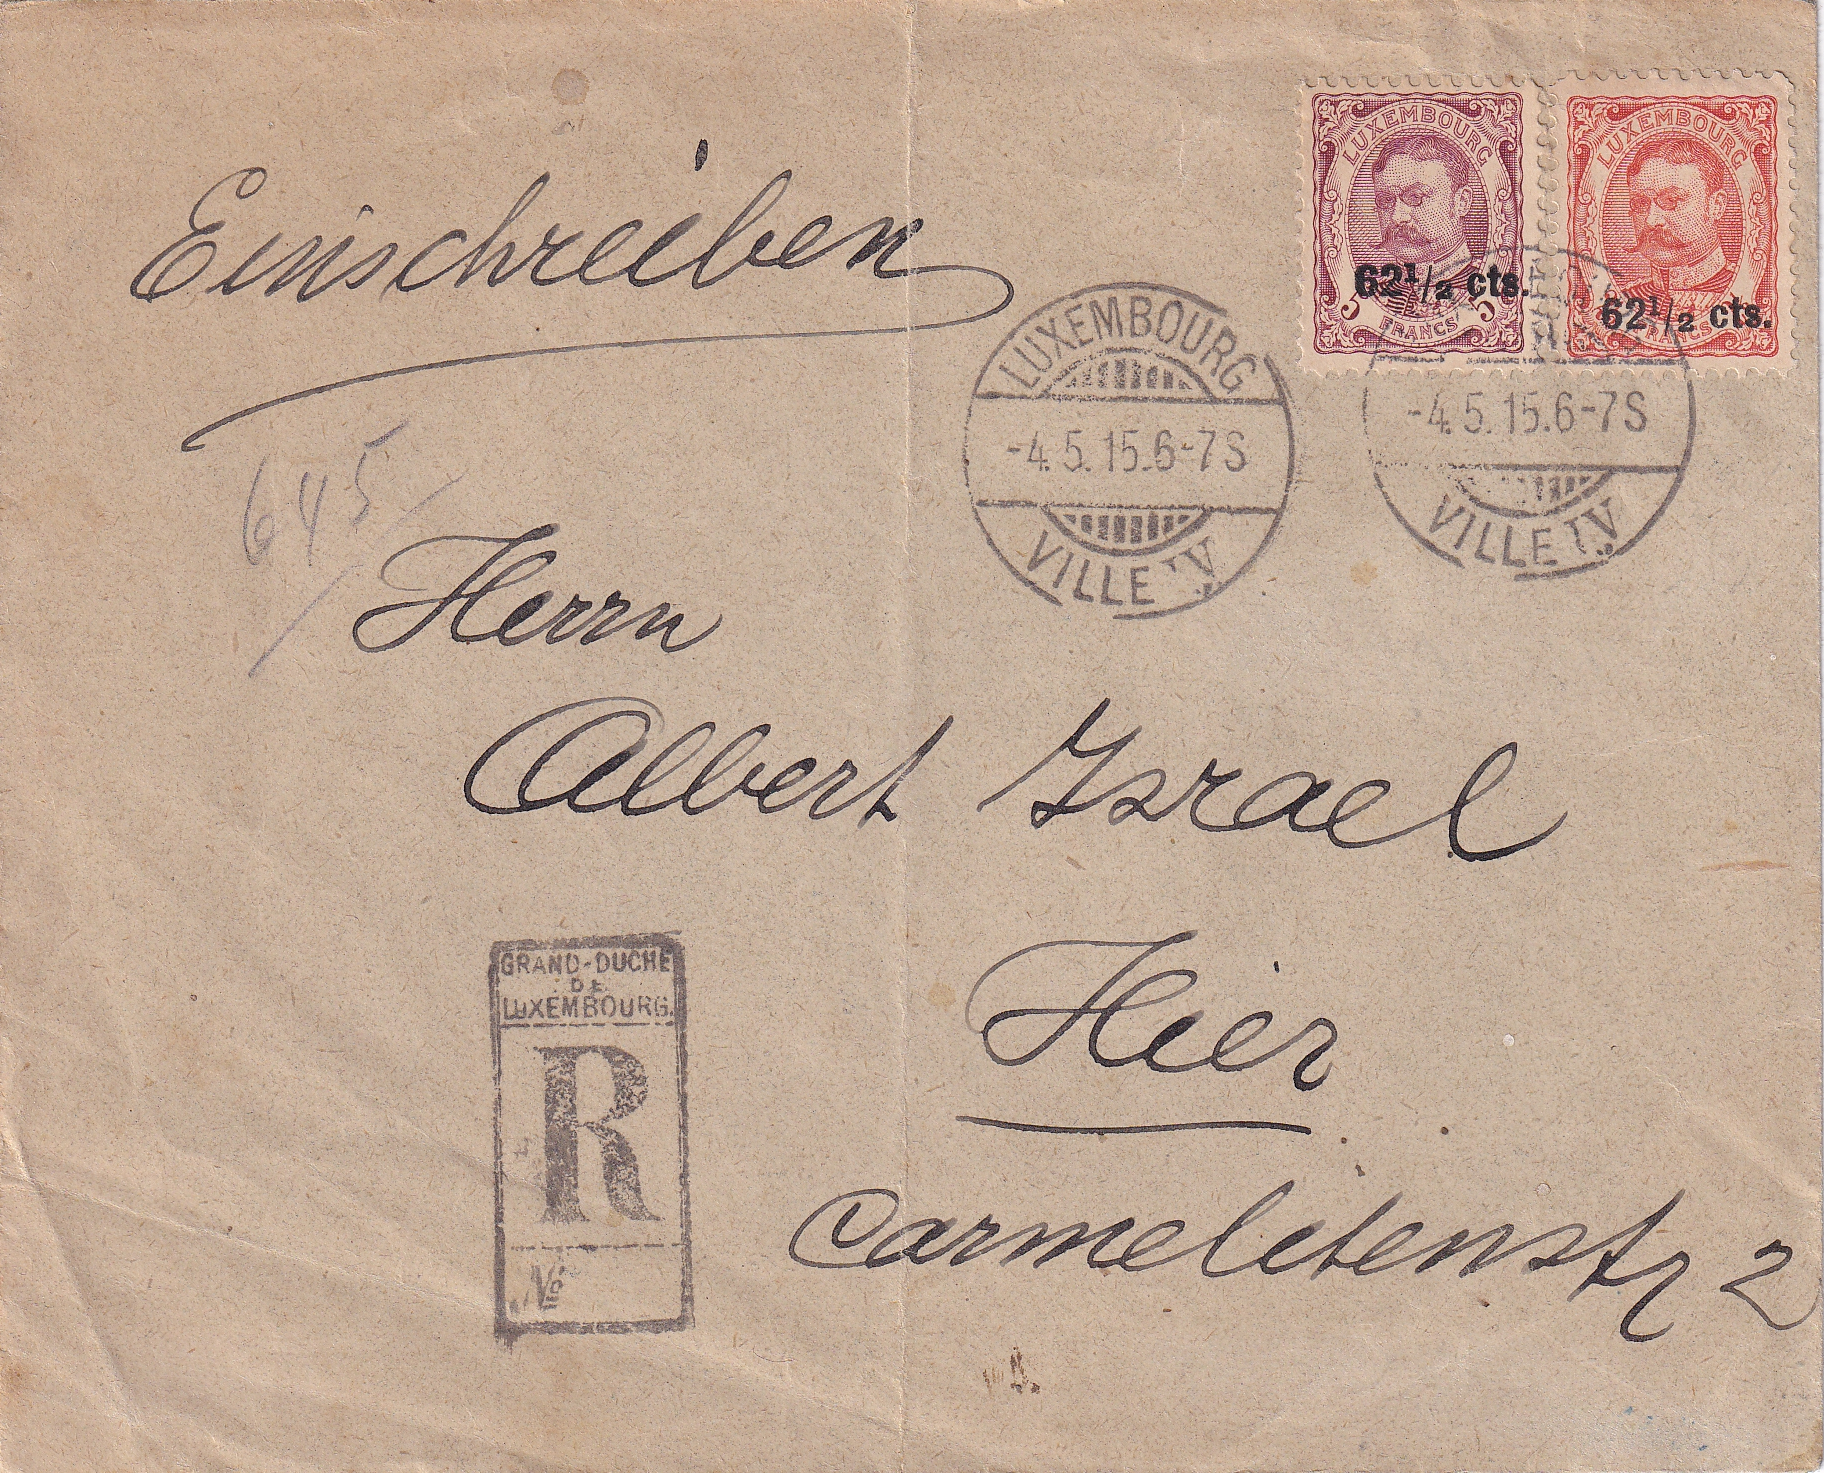 Einschreiben
LUXEMBOURG
5 5
FRANCS
62½ cts.
LUXEMBOURG
FRANCS
62½ cts.
LUXEMBOURG
-4.5.15.6-7S
VILLE IV.
-4.5.15.6-7S
VILLE IV.
645
Herrn
Albert Israel
Hier
Carmelitenstr 2
GRAND-DUCHÉ
DE
LUXEMBOURG.
R
No